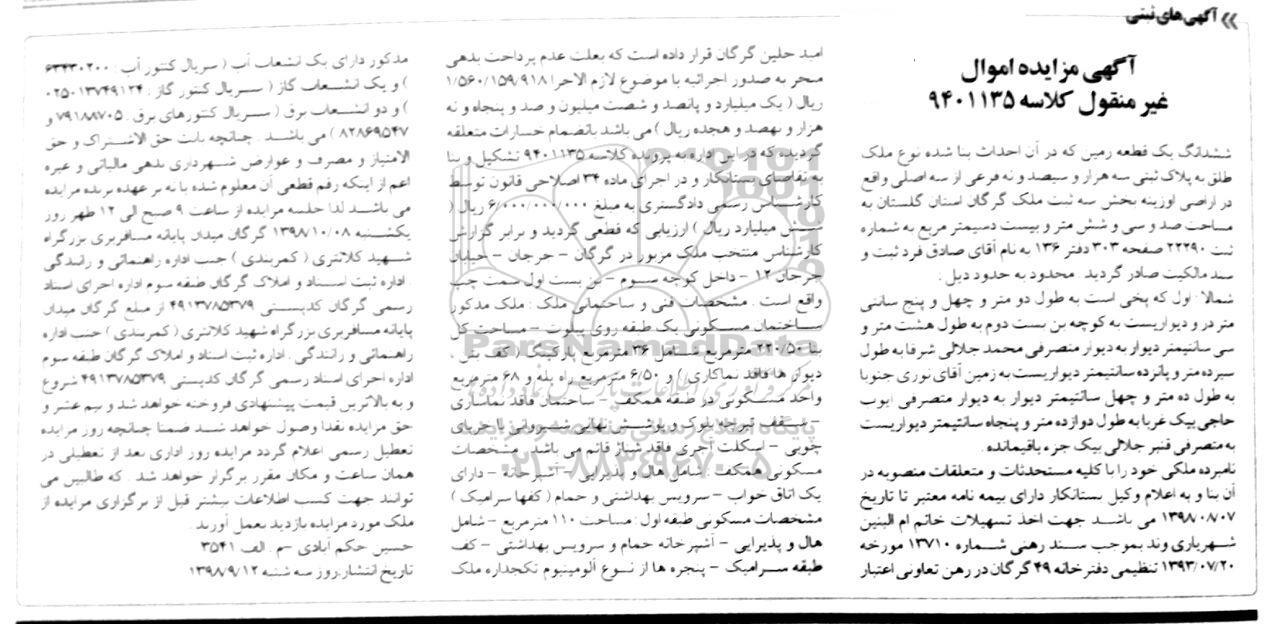 آگهی‌های ثبتی
آگهی مزایده اموال
غیر منقول کلاسه ۹۴۰۱۱۳۵
ششدانگ یک قطعه زمین که در آن احداث بنا شده نوع ملک
طلق به پلاک ثبتی سه هزار و سیصد و نه فرعی از سه اصلی واقع
در اراضی اوزینه بخش سه ثبت ملک گرگان استان گلستان به
مساحت صد و سی و شش متر و بیست دسیمتر مربع به شماره
ثبت ۲۲۲۹۰ صفحه ۳۰۳ دفتر ۱۳۶ به نام آقای صادق فرد ثبت و
سند مالکیت صادر گردید. محدود به حدود ذیل:
شمالا: اول که پخی است به طول دو متر و چهل و پنج سانتی
متر در و دیواریست به کوچه بن بست دوم به طول هشت متر و
سی سانتیمتر دیوار به دیوار متصرفی محمد جلالی شرقا به طول
سیزده متر و پانزده سانتیمتر دیواریست به زمین آقای نوری جنوبا
به طول ده متر و چهل سانتیمتر دیوار به دیوار متصرفی ایوب
حاجی بیک غربا به طول دوازده متر و پنجاه سانتیمتر دیواریست
به متصرفی قنبر جلالی بیک جزء باقیمانده.
نامبرده ملکی خود را با کلیه مستحدثات و متعلقات منصوبه در
آن بنا و به اعلام وکیل بستانکار دارای بیمه نامه معتبر تا تاریخ
۱۳۹۸/۰۸/۰۷ می باشد جهت اخذ تسهیلات خانم ام البنین
شهریاری وند بموجب سند رهنی شماره ۱۳۷۱۰ مورخه
۱۳۹۳/۰۷/۲۰ تنظیمی دفترخانه ۴۹ گرگان در رهن تعاونی اعتبار
امید جلین گرگان قرار داده است که بعلت عدم پرداخت بدهی
منجر به صدور اجرائیه با موضوع لازم الاجرا ۱/۵۶۰/۱۵۹/۹۱۸
ریال ( یک میلیارد و پانصد و شصت میلیون و صد و پنجاه و نه
هزار و نهصد و هجده ریال ) می باشد بانضمام خسارات متعلقه
گردیده که در این اداره به پرونده کلاسه ۹۴۰۱۱۳۵ تشکیل و بنا
به تقاضای بستانکار و در اجرای ماده ۳۴ اصلاحی قانون توسط
کارشناس رسمی دادگستری به مبلغ ۶/۰۰۰/۰۰۰/۰۰۰ ریال (
شش میلیارد ریال ) ارزیابی که قطعی گردید و برابر گزارش
کارشناس منتخب ملک مزبور در گرگان - جرجان - خیابان
جرجان ۱۲ - داخل کوچه سوم - بن بست اول سمت چپ
واقع است. مشخصات فنی و ساختمانی ملک: ملک مذکور
ساختمان مسکونی یک طبقه روی پیلوت - مساحت کل
بنا ۲۲۰/۵۰ مترمربع شامل ۳۶ مترمربع پارکینگ ( کف بتن،
دیوار ها فاقد نماکاری ) و ۶/۵۰ مترمربع راه پله و ۶۸ مترمربع
واحد مسکونی در طبقه همکف - ساختمان فاقد نماسازی
- سقف تیرچه بلوک و پوشش نهایی شیروانی با خرپای
چوبی - اسکلت آجری فاقد شناژ قائم می باشد. مشخصات
مسکونی همکف: شامل هال و پذیرایی - آشپزخانه - دارای
یک اتاق خواب - سرویس بهداشتی و حمام ( کفها سرامیک )
مشخصات مسکونی طبقه اول: مساحت ۱۱۰ مترمربع - شامل
هال و پذیرایی - آشپزخانه حمام و سرویس بهداشتی - کف
طبقه سرامیک - پنجره ها از نوع آلومینیوم تکجداره ملک
مذکور دارای یک انشعاب آب ( سریال کنتور آب: ۶۳۴۳۰۲۰۰
) و یک انشعاب گاز ( سریال کنتور گاز: ۰۲۵۰۱۳۷۴۹۱۲۴
) و دو انشعاب برق ( سریال کنتورهای برق: ۷۹۱۸۸۷۰۵ و
۸۲۸۶۹۵۴۷ ) می باشد. چنانچه بابت حق الاشتراک و حق
الامتیاز و مصرف و عوارض شهرداری بدهی مالیاتی و غیره
اعم از اینکه رقم قطعی آن معلوم شده یا نه بر عهده برنده مزایده
می باشد لذا جلسه مزایده از ساعت ۹ صبح الی ۱۲ ظهر روز
یکشنبه ۱۳۹۸/۱۰/۰۸ گرگان میدان پایانه مسافربری بزرگراه
شهید کلانتری ( کمربندی ) جنب اداره راهنمائی و رانندگی
. اداره ثبت اسناد و املاک گرگان طبقه سوم اداره اجرای اسناد
رسمی گرگان کدپستی ۴۹۱۳۷۸۵۳۷۹ از مبلغ گرگان میدان
پایانه مسافربری بزرگراه شهید کلانتری ( کمربندی ) جنب اداره
راهنمائی و رانندگی. اداره ثبت اسناد و املاک گرگان طبقه سوم
اداره اجرای اسناد رسمی گرگان کدپستی ۴۹۱۳۷۸۵۳۷۹ شروع
و به بالاترین قیمت پیشنهادی فروخته خواهد شد و نیم عشر و
حق مزایده نقدا وصول خواهد شد ضمنا چنانچه روز مزایده
تعطیل رسمی اعلام گردد مزایده روز اداری بعد از تعطیلی در
همان ساعت و مکان مقرر برگزار خواهد شد. که طالبین می
توانند جهت کسب اطلاعات بیشتر قبل از برگزاری مزایده از
ملک مورد مزایده بازدید بعمل آورند.
حسین حکم آبادی - م. الف ۳۵۴۱
تاریخ انتشار: روز سه شنبه ۱۳۹۸/۹/۱۲
ParsNamadData
پایگاه اطلاع رسانی مناقصه و مزایده
۰۲۱-۸۸۳۴۹۶۷۰-۵